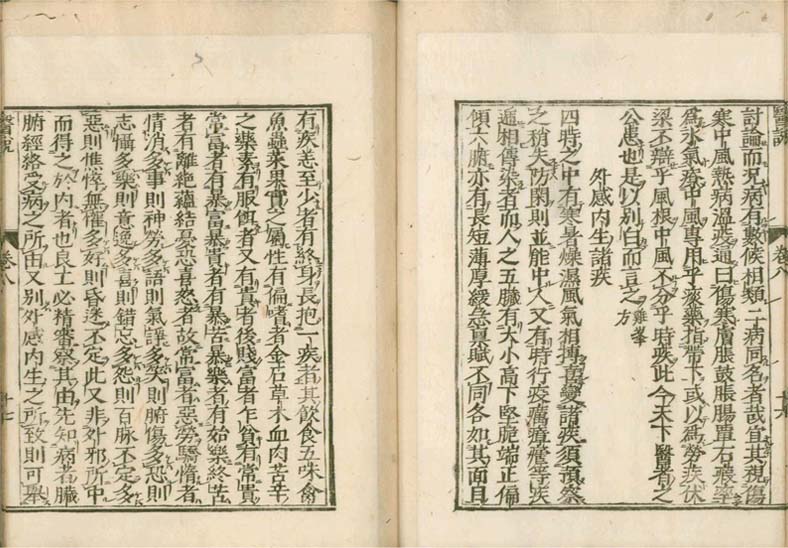 醫說 卷八 十六
討論而況病有數候相類二病同名者哉宜其視傷
寒中風熱病溫疫通曰傷寒膚脹鼓脹腸覃石瘕率
為水氣療中風專用乎痰藥指帶下或以為勞疾伏
梁不辯乎風根中風不分乎時疾此今天下醫者之
公患也是以別白而言之 雞峯方
外感內生諸疾
四時之中有寒暑燥濕風氣相搏善變諸疾須預察
之稍失防閑則並能中人又有時行疫癘瘴等疾
遞相傳染者而人之五臟有大小高下堅脆端正偏
傾六腑亦有長短薄厚緩急稟賦不同各如其面目
有疾恙至少者有終身長抱一疾者其飲食五味禽
魚蟲菜果實之屬性有偏嗜者金石草木血肉苦辛
之藥素有服餌者又有貴者後賤富者乍貧有常貴
常富者有暴富暴貴者有暴苦暴樂者有始樂終苦
者有離絕蘊結憂恐喜怒者故常富者惡勞驕惰者
情消多事則神勞多語則氣諍多笑則腑傷多恐則
志懾多樂則意逸多喜則錯忘多怨則百脉不定多
惡則惟悴無懽多好則昏迷不定此又非外邪所中
而得之於內者也良工必精審察其由先知病者臟
腑經絡受病之所由又別外感內生之所致則可舉
醫說 卷八 十七